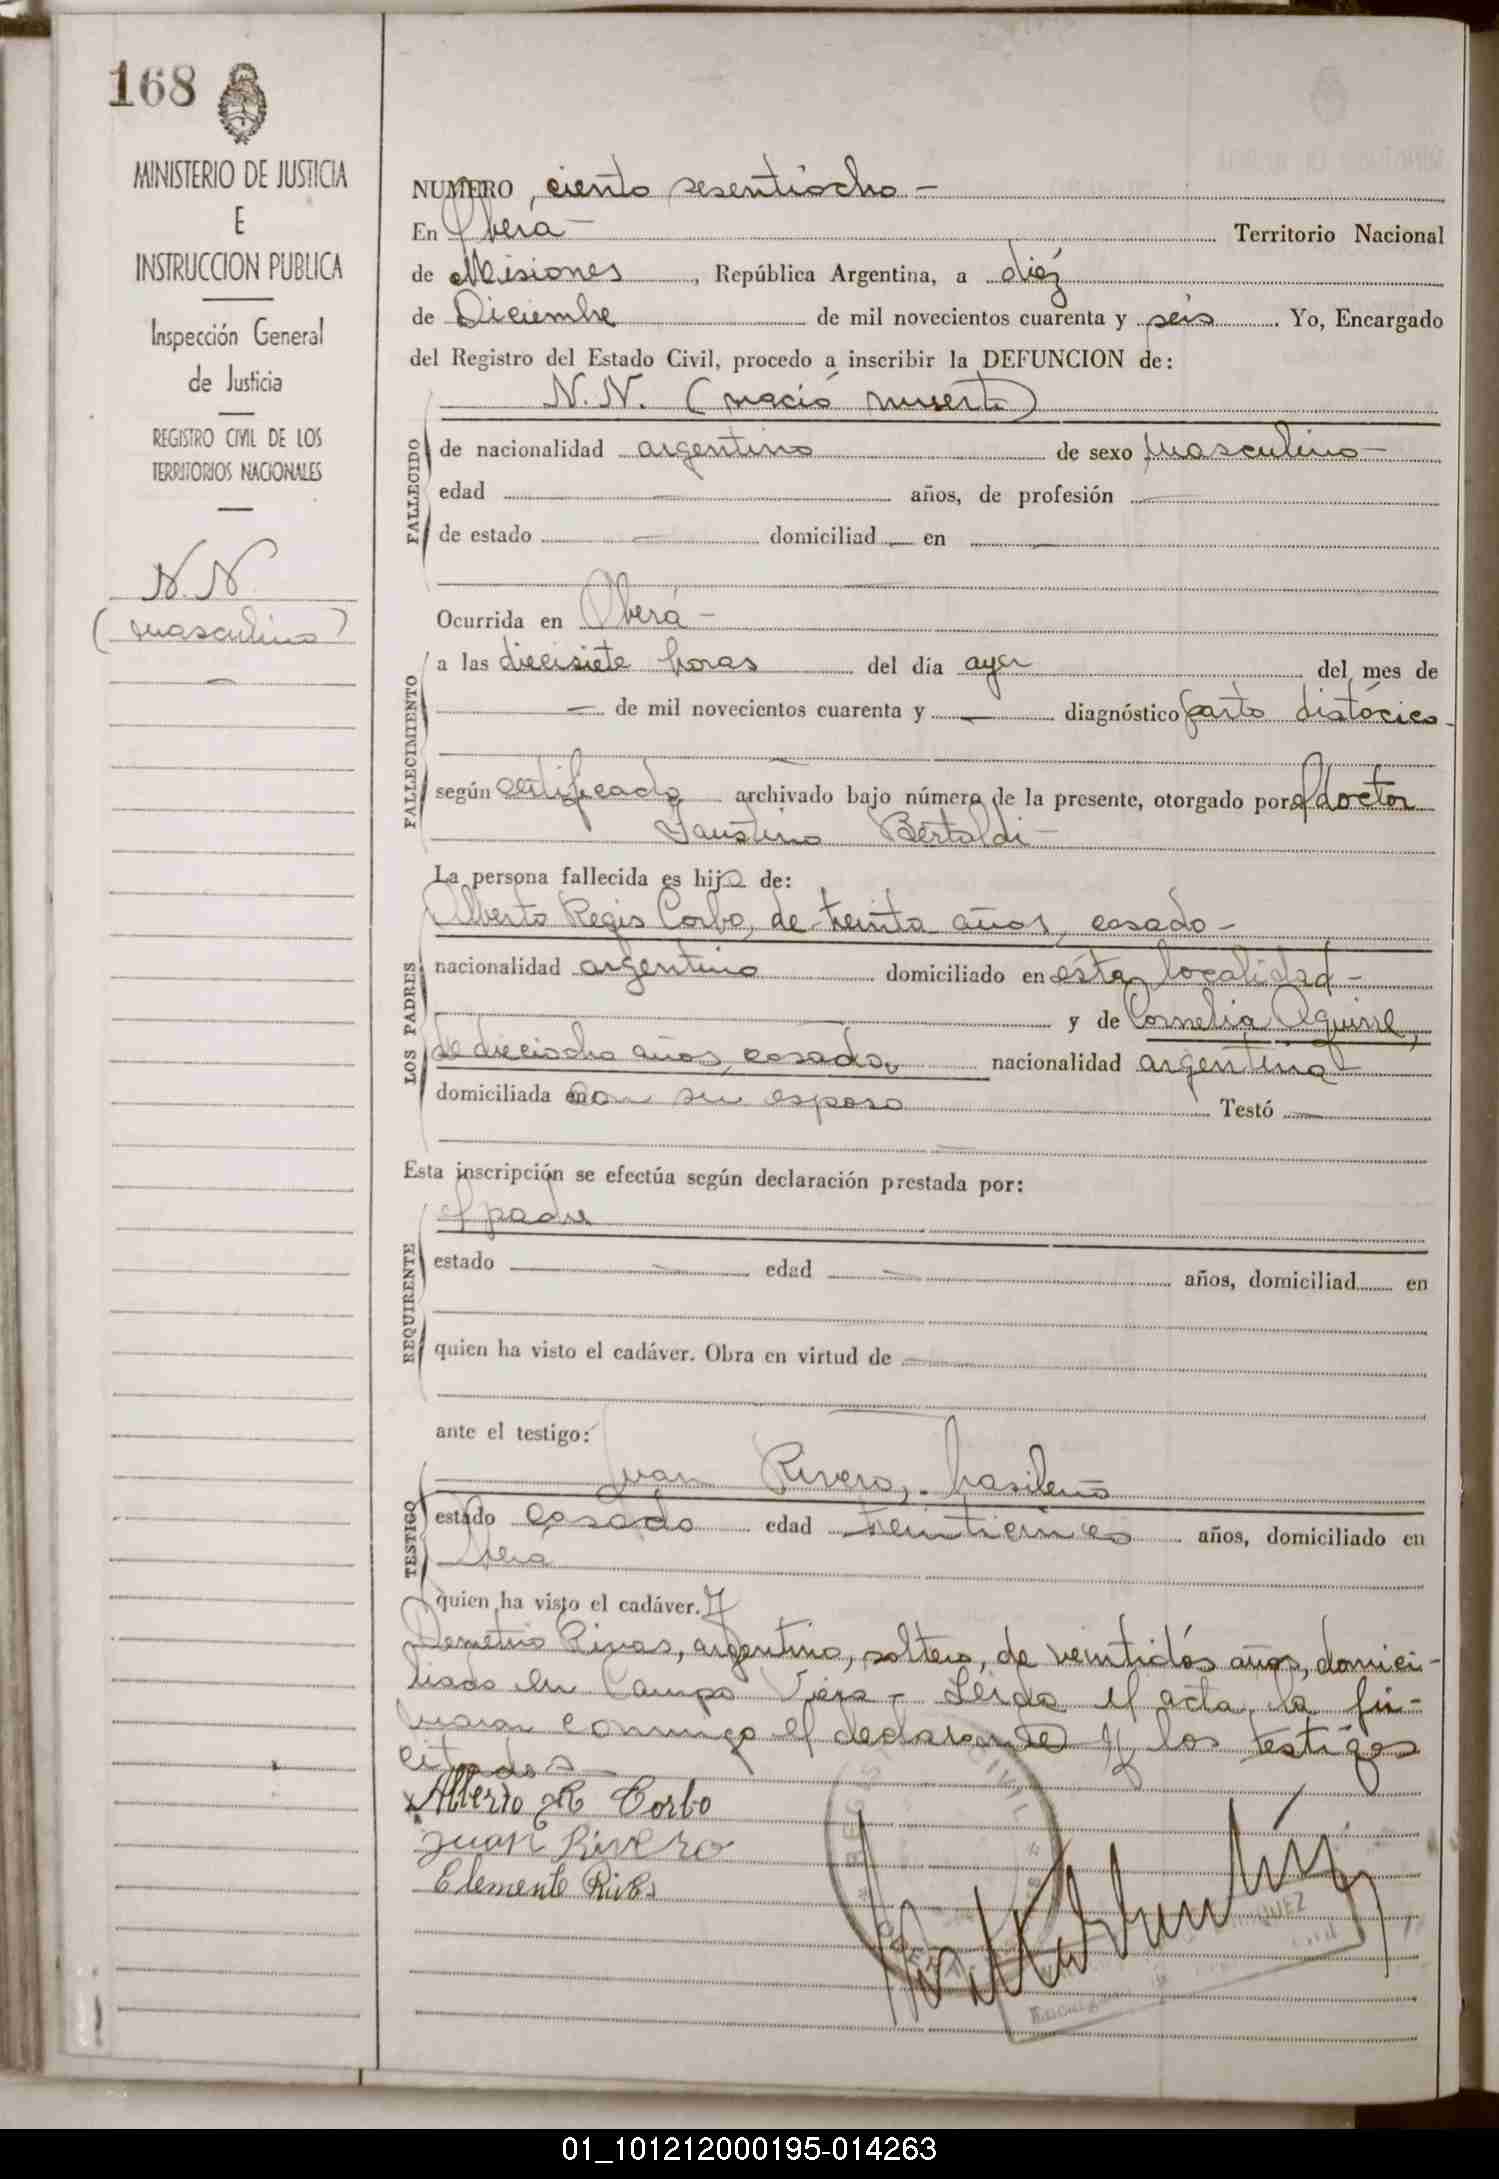 168
MINISTERIO DE JUSTICIA
E
INSTRUCCION PUBLICA
Inspección General
de Justicia
REGISTRO CIVIL DE LOS
TERRITORIOS NACIONALES
N. N.
(masculino)
NUMERO, ciento sesentiocho -
En Oberá - Territorio Nacional
de Misiones, República Argentina, a diéz
de Diciembre de mil novecientos cuarenta y seis. Yo, Encargado
del Registro del Estado Civil, procedo a inscribir la DEFUNCION de:
N. N. (nació muerto)
FALLECIDO
de nacionalidad argentino de sexo masculino -
edad — años, de profesión —
de estado — domiciliad — en —
Ocurrida en Oberá -
FALLECIMIENTO
a las diecisiete horas del día ayer del mes de
— de mil novecientos cuarenta y — diagnóstico parto distócico -
según certificado archivado bajo número de la presente, otorgado por el doctor
Faustino Bertoldi -
La persona fallecida es hijo de:
LOS PADRES
Alberto Regis Corbo, de treinta años, casado -
nacionalidad argentino domiciliado en esta localidad -
y de Cornelia Aguirre,
de dieciocho años, casada, nacionalidad argentina
domiciliada con su esposo Testó —
Esta inscripción se efectúa según declaración prestada por:
REQUIRENTE
el padre
estado — edad — años, domiciliad en
quien ha visto el cadáver. Obra en virtud de —
ante el testigo:
TESTIGO
Juan Rivero, brasileño
estado casado edad treinticinco años, domiciliado en
Oberá
quien ha visto el cadáver. Y
Demetrio Rivas, argentino, soltero, de veintidós años, domici-
liado en Campo Viera - Leída el acta, la fir-
maron conmigo el declarante y los testigos
citados -
Alberto R Corbo
Juan Rivero
Clemente Rivas
01_101212000195-014263